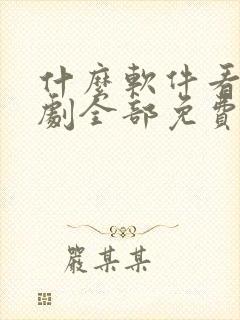 什麼軟件看
劇全部免費
嚴某某